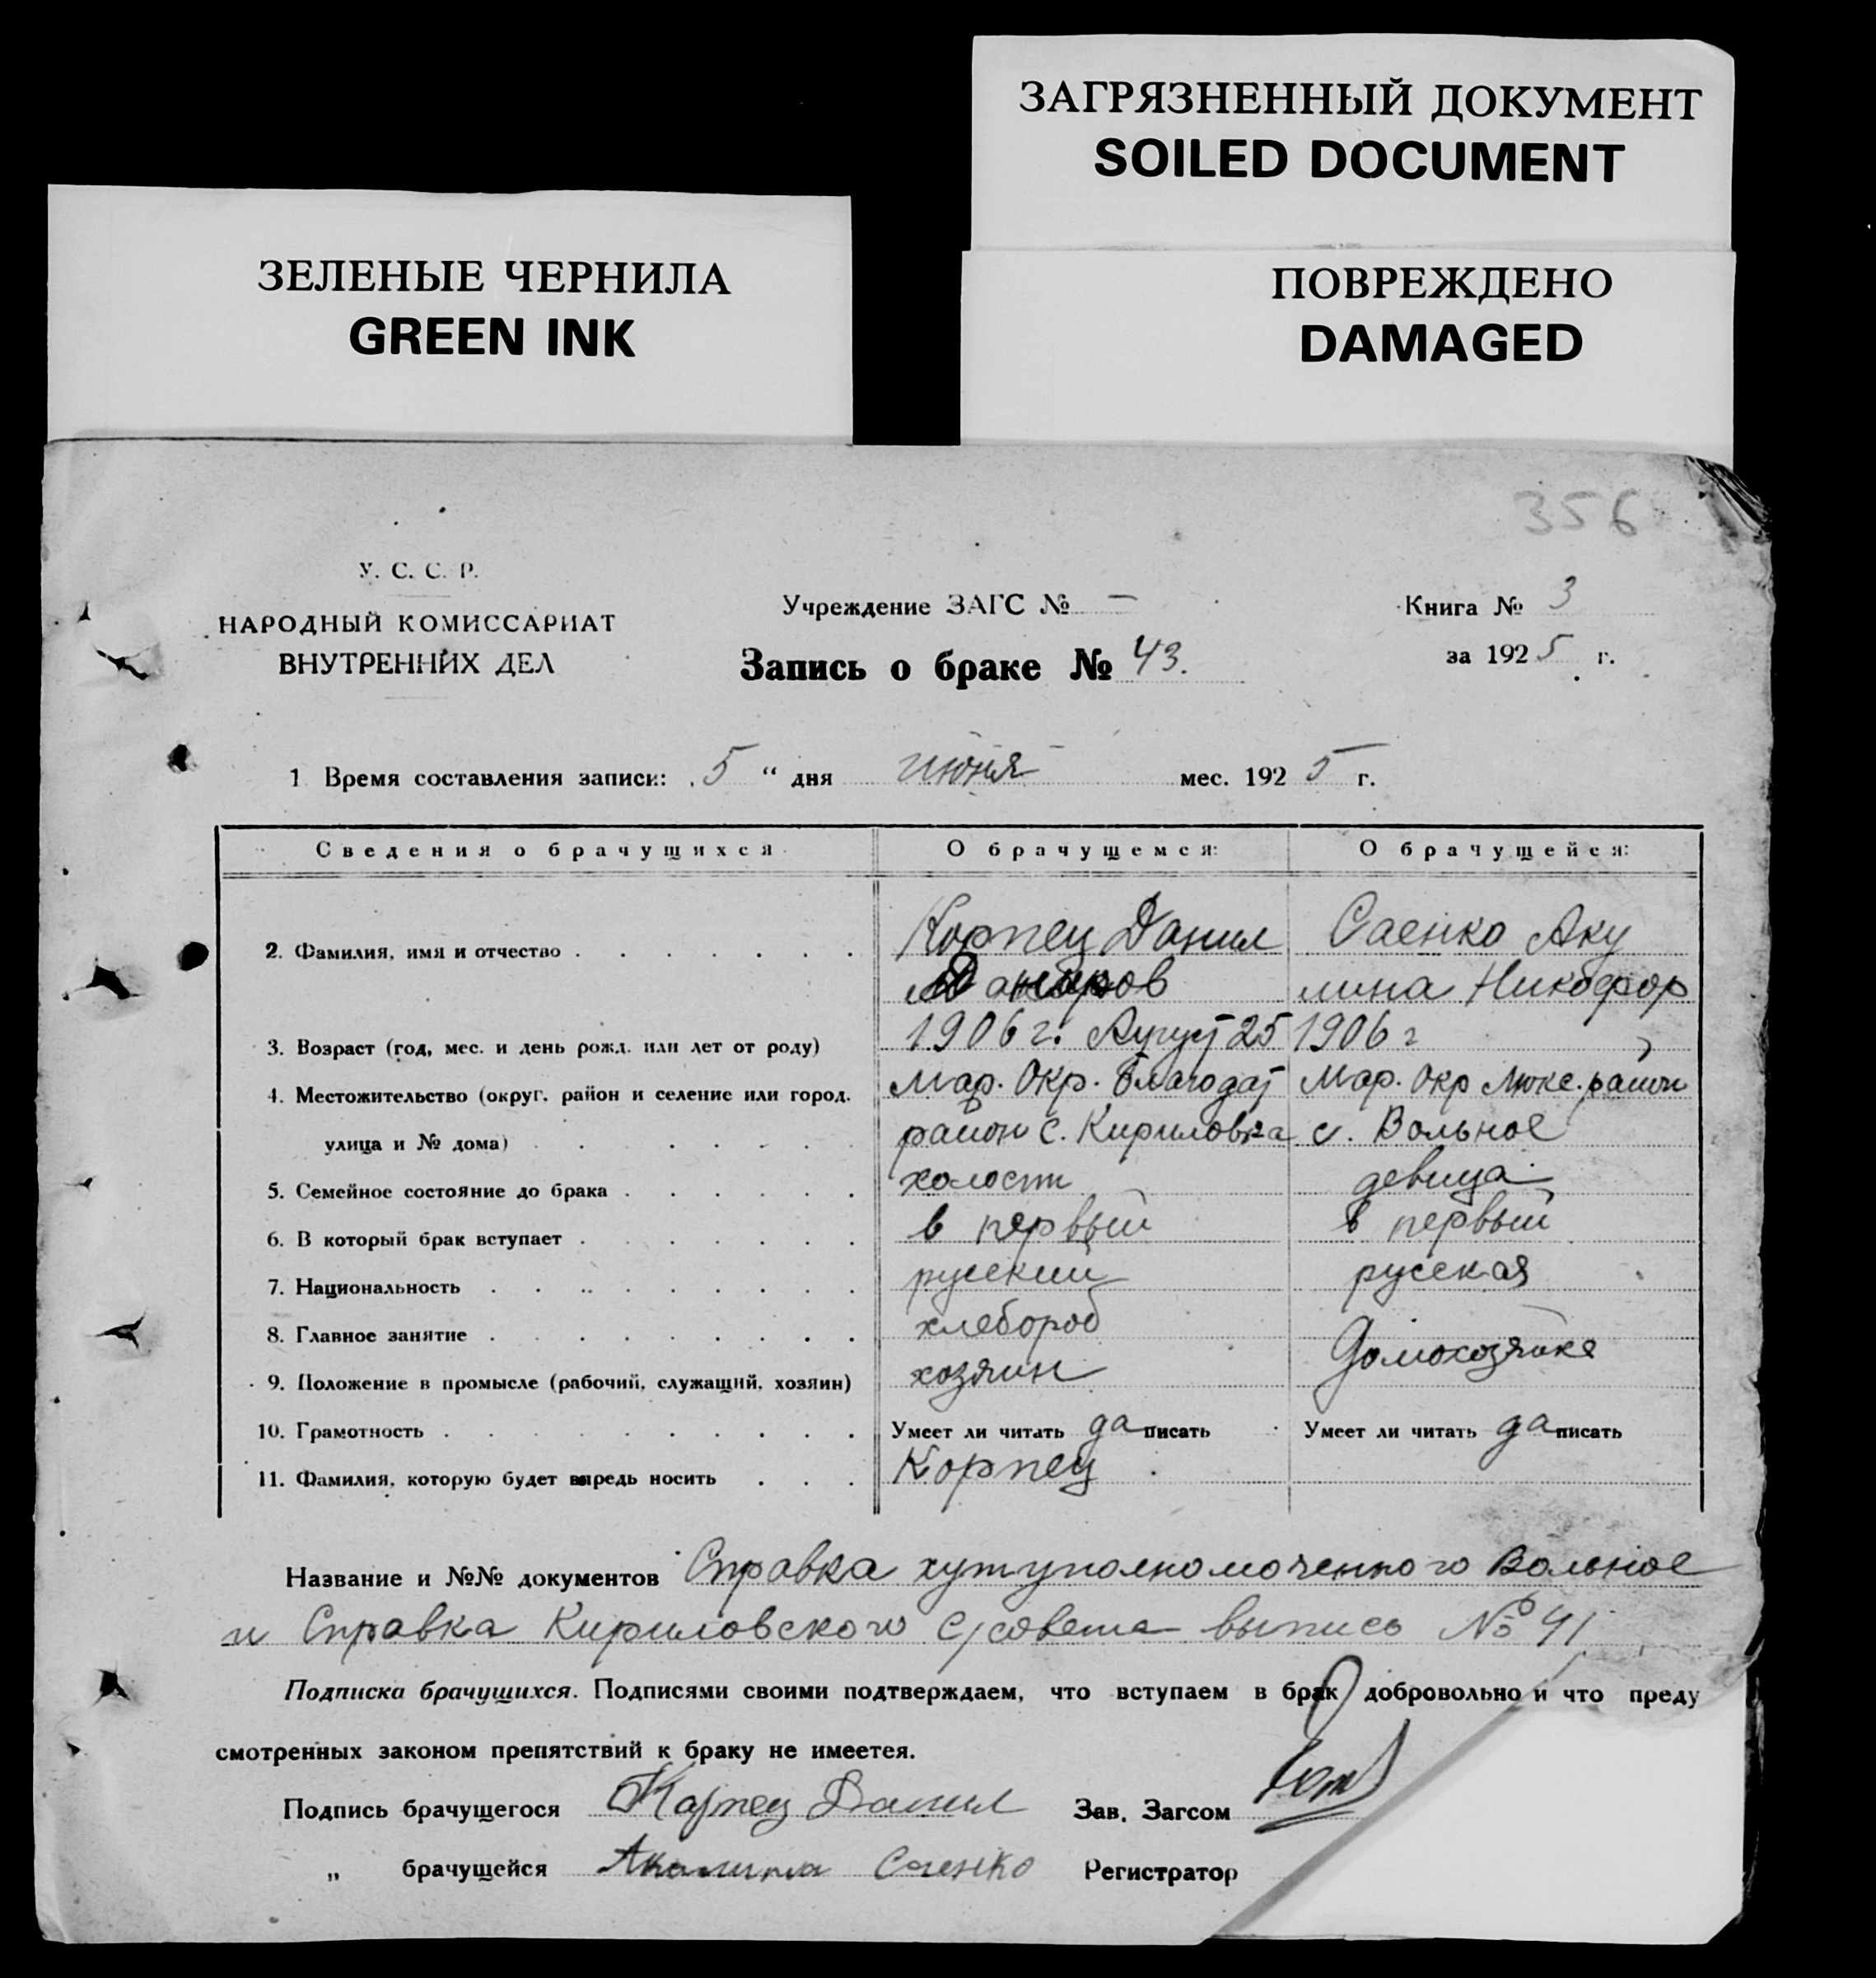 ЗАГРЯЗНЕННЫЙ ДОКУМЕНТ
SOILED DOCUMENT
ЗЕЛЕНЫЕ ЧЕРНИЛА
GREEN INK
ПОВРЕЖДЕНО
DAMAGED
356
У. С. С. Р.
НАРОДНЫЙ КОМИССАРИАТ
ВНУТРЕННИХ ДЕЛ
Учреждение ЗАГС № —
Запись о браке № 43.
Книга № 3
за 1925 г.
1 Время составления записи: 5 “ дня июня мес. 1925 г.
Сведения о брачущихся О брачущемся: О брачущейся:
2. Фамилия, имя и отчество Корпец Данил Саенко Аку
лина Никофор
3. Возраст (год, мес. и день рожд. или лет от роду) 1906 г. Август 25 1906 г
4. Местожительство (округ, район и селение или город. Мар. Окр. Благодат Мар. Окр Люкс. район
улица и № дома) район с. Кириловка с. Вольное
5. Семейное состояние до брака холост девица
6. В который брак вступает в первый в первый
7. Национальность русский русская
8. Главное занятие хлебороб
9. Положение в промысле (рабочий, служащий, хозяин) хозяин Домохозяйка
10. Грамотность Умеет ли читать да писать Умеет ли читать да писать
11. Фамилия, которую будет впредь носить Корпец
Название и №№ документов Справка хутуполномоченного Вольное
и Справка Кириловского с/совета выпись № 41
Подписка брачущихся. Подписями своими подтверждаем, что вступаем в брак добровольно и что преду
смотренных законом препятствий к браку не имеется.
Подпись брачущегося Карпец Данил Зав. Загсом
„ брачущейся Акулина Саенко Регистратор